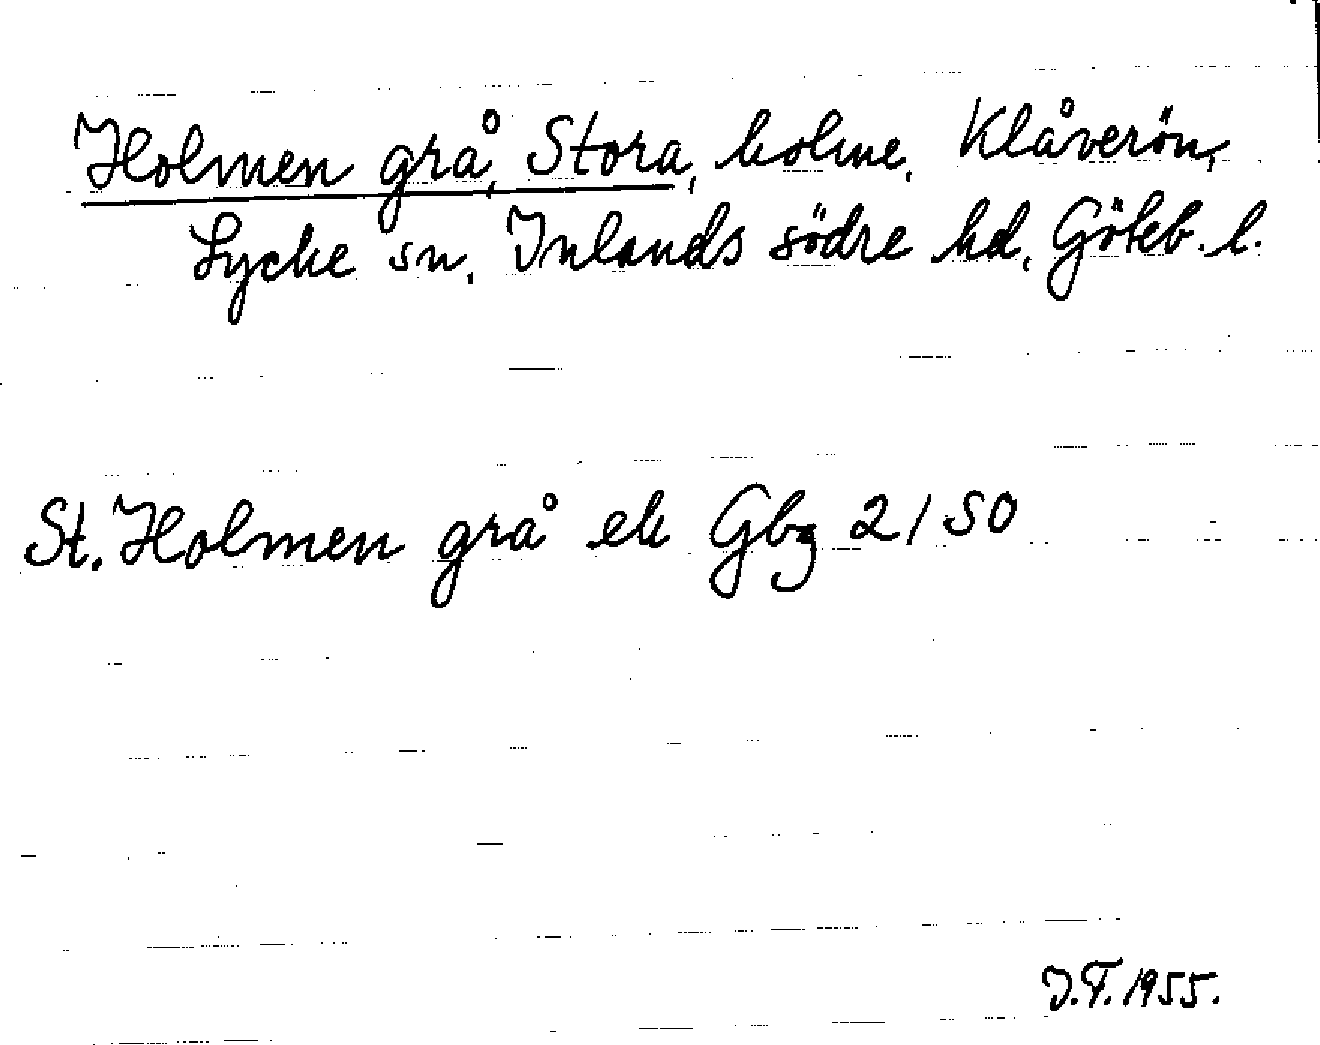 Holmen grå, Stora, holme, Klåverön,
Lycke sn, Inlands södre hd, Göteb. l.
St. Holmen grå ek Gbg 2/50
J.T. 1955.